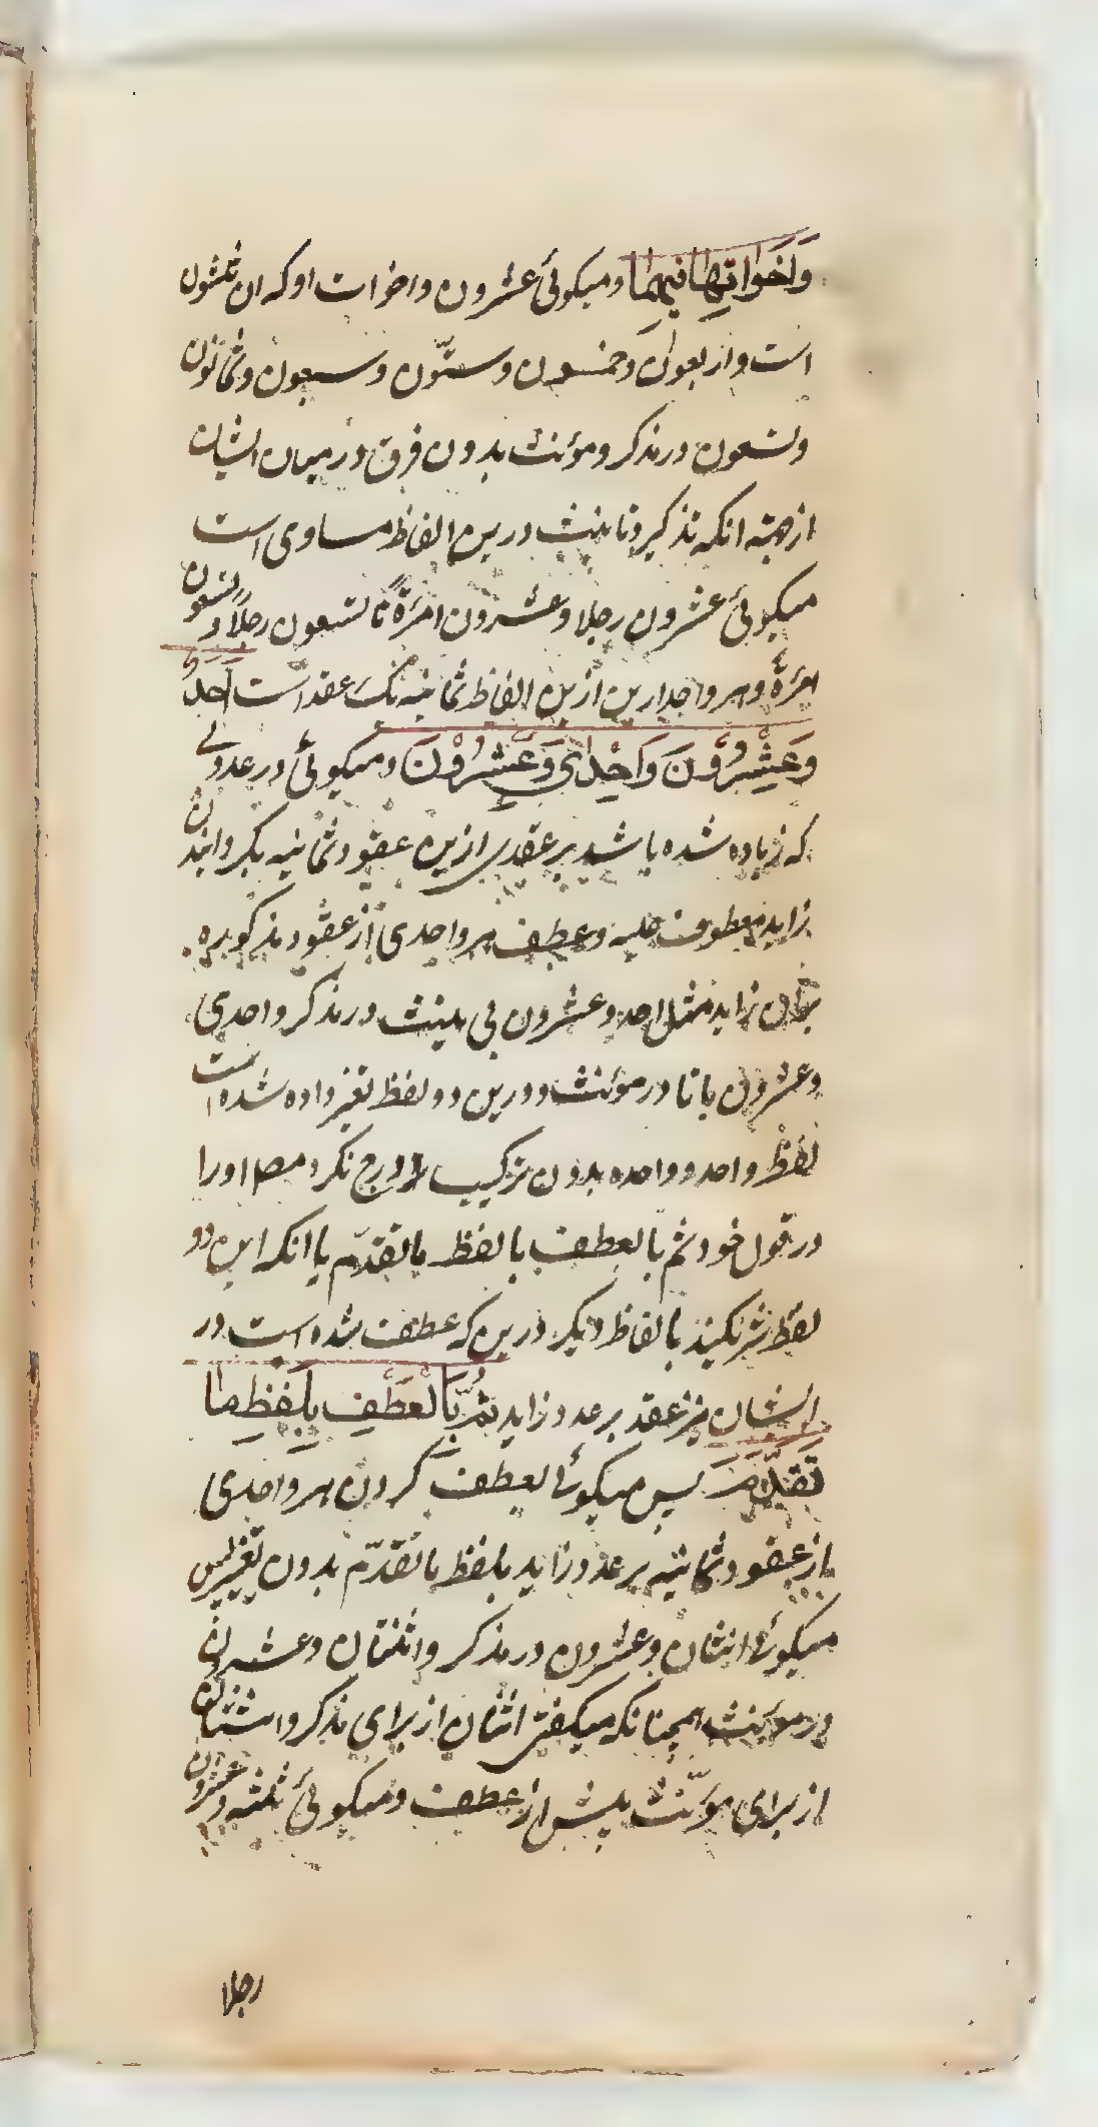 وَاَخَوَاتِهَا فِیهِمَا و میکوئی عشرون واخوات او که ان ثلثون
است واربعون وخمسون وستّون وسبعون وثمانون
وتسعون در مذکر ومؤنث بدون فرق در میان ایشان
از جهته انکه تذکیر وتانیث درین الفاظ مساوی است
میکوئی عشرون رجلا وعشرون امرَةً تا تسعون رجلاً و تسعون
امرَةً وهر واحد ازین الفاظ ثمانیه یک عقد است اَحَدٌ
وَعِشْرُوْنَ وَاِحْدٰی وَعِشْرُوْنَ و میکوئی در عددی
که زیاده شده باشد بر عقدی ازین عقود ثمانیه بکردانیدن
زاید معطوف علیه وعطف هر واحدی از عقود مذکوره
بران زاید مثل احد وعشرون بی تانیث در مذکر واحدی
وعشرون با تا در مؤنث ودرین دو لفظ تغیر داده شده است
لفظ واحد وواحده بدون ترکیب درج نکرد مصـ اورا
در قول خود ثم بالعطف بالفظ ماتقدّم با انکه این دو
لفظ شریکند بالفاظ دیکر درین که عطف شده است در
ایشان نیز عقد بر عدد زاید ثُمَّ بِالْعَطْفِ بِلَفْظِ مَا
تَقَدَّمَ پس میکوئی بعطف کردن هر واحدی
از عقود ثمانیه بر عدد زاید بلفظ ماتقدّم بدون تغییر پس
میکوئی اثنان وعشرون در مذکر واثنتان وعشرون
در مؤنث همچنانکه میکفتی اثنان از برای مذکر واثنتان
از برای مؤنّث پیش از عطف ومیکوئی ثلثه وعشرون
رجلا